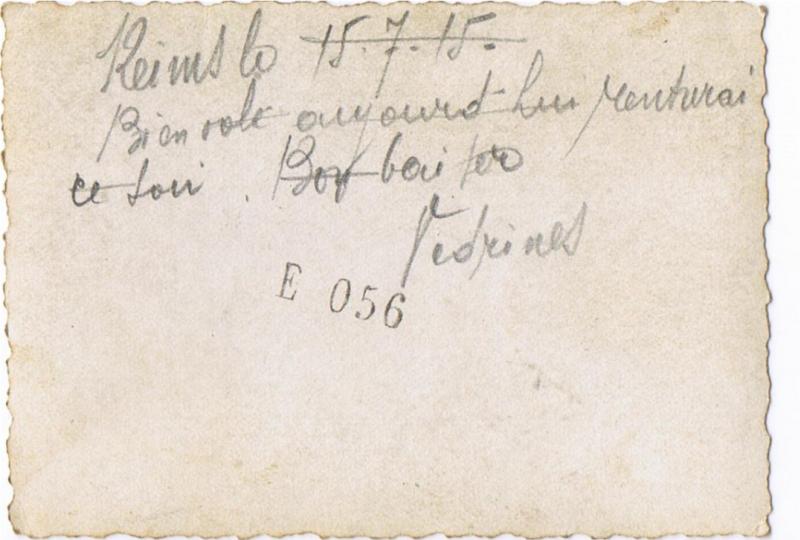 Reims le 15.7.15.
Bien volé aujourd'hui rentrerai
ce soir. Bon baiser
Vedrines
E 056